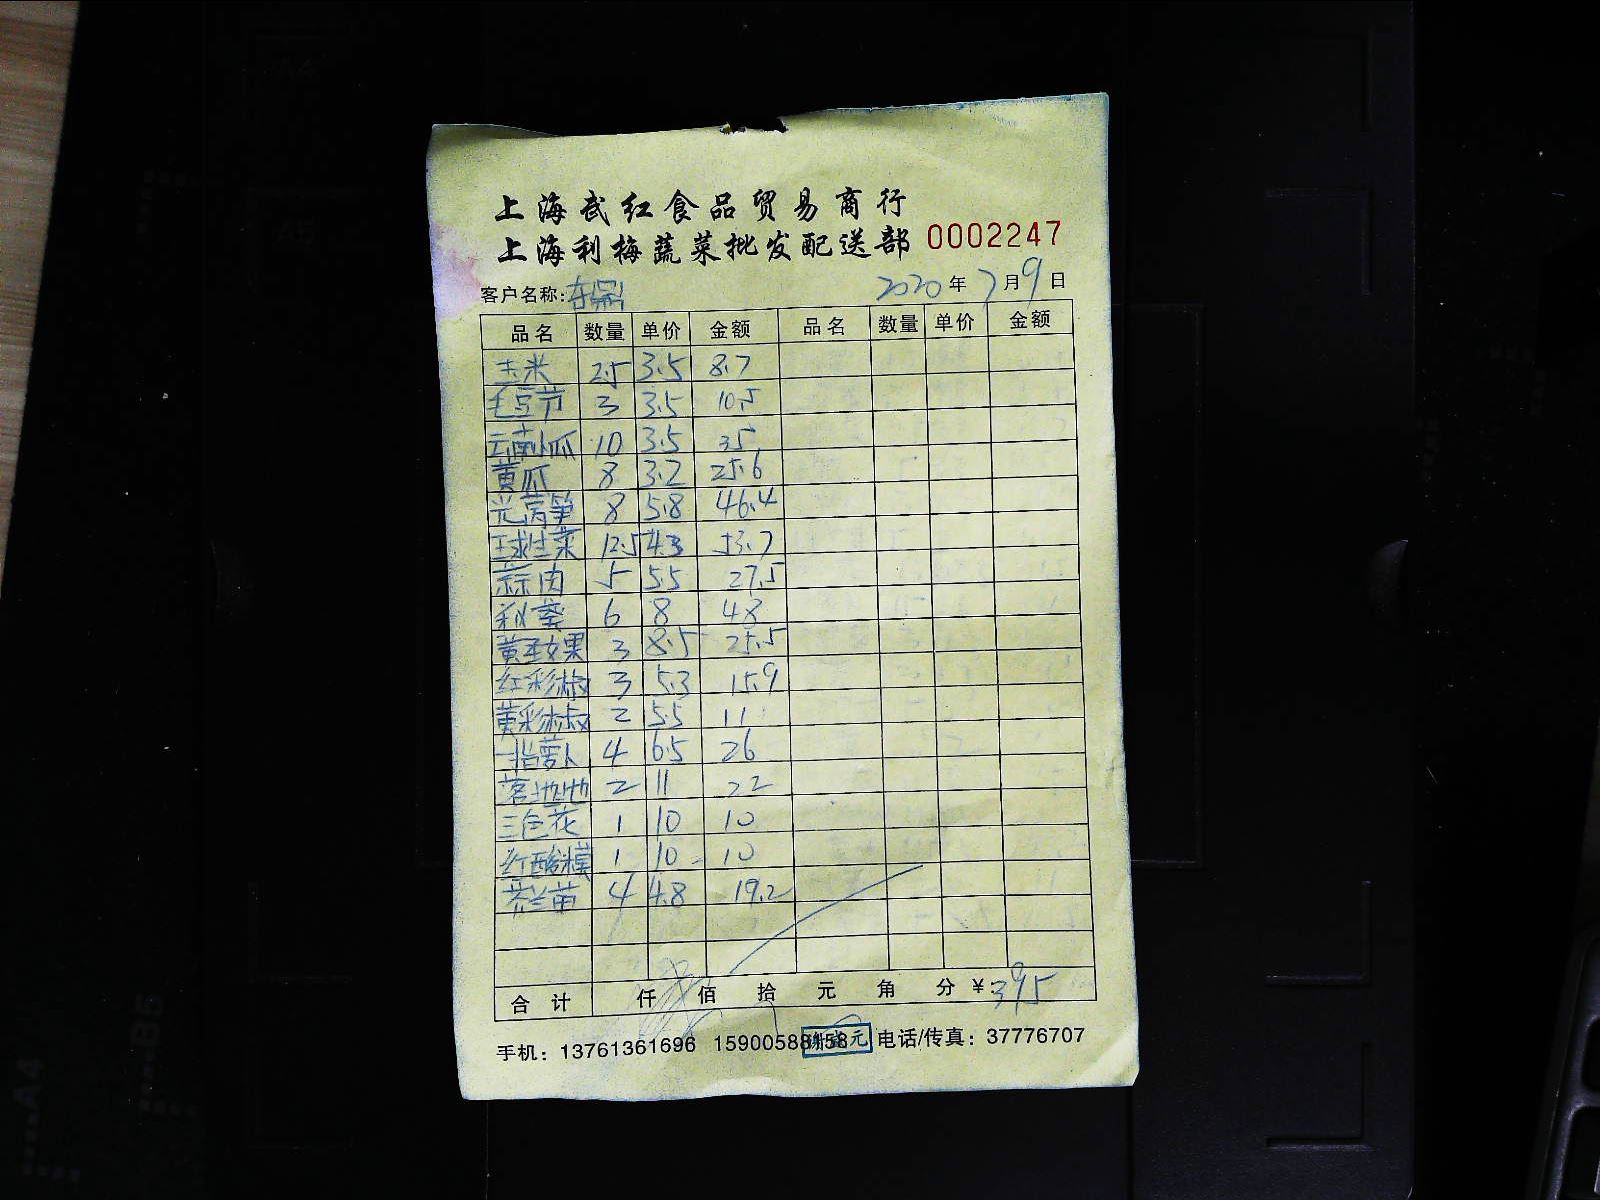 上海武红食品贸易商行
上海利梅蔬菜批发配送部 0002247
客户名称: 2020年7月9日
品名 数量 单价 金额 品名 数量 单价 金额
玉米 2.5 3.5 8.7
毛豆节 3 3.5 10.5
云南小瓜 10 3.5 35
黄瓜 8 3.2 25.6
光莴笋 8 5.8 46.4
球生菜 12.5 4.3 53.7
蒜肉 5 5.5 27.5
秋葵 6 8 48
黄 果 3 8.5 25.5
红彩椒 3 5.3 15.9
黄彩椒 2 5.5 11
指萝卜 4 6.5 26
2 11 22
三色花 1 10 10
红酸模 1 10 10
芥兰苗 4 4.8 19.2
合计 仟 佰 拾 元 角 分 ¥: 395
手机: 13761361696 15900588158 电话/传真: 37776707